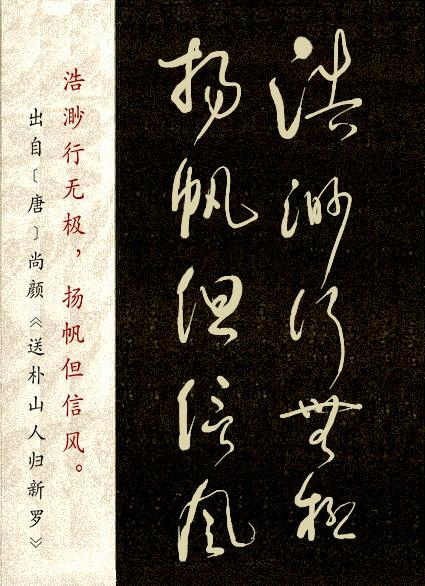 浩渺行無极
扬帆但信风
浩渺行无极，扬帆但信风。
出自〔唐〕尚颜《送朴山人归新罗》